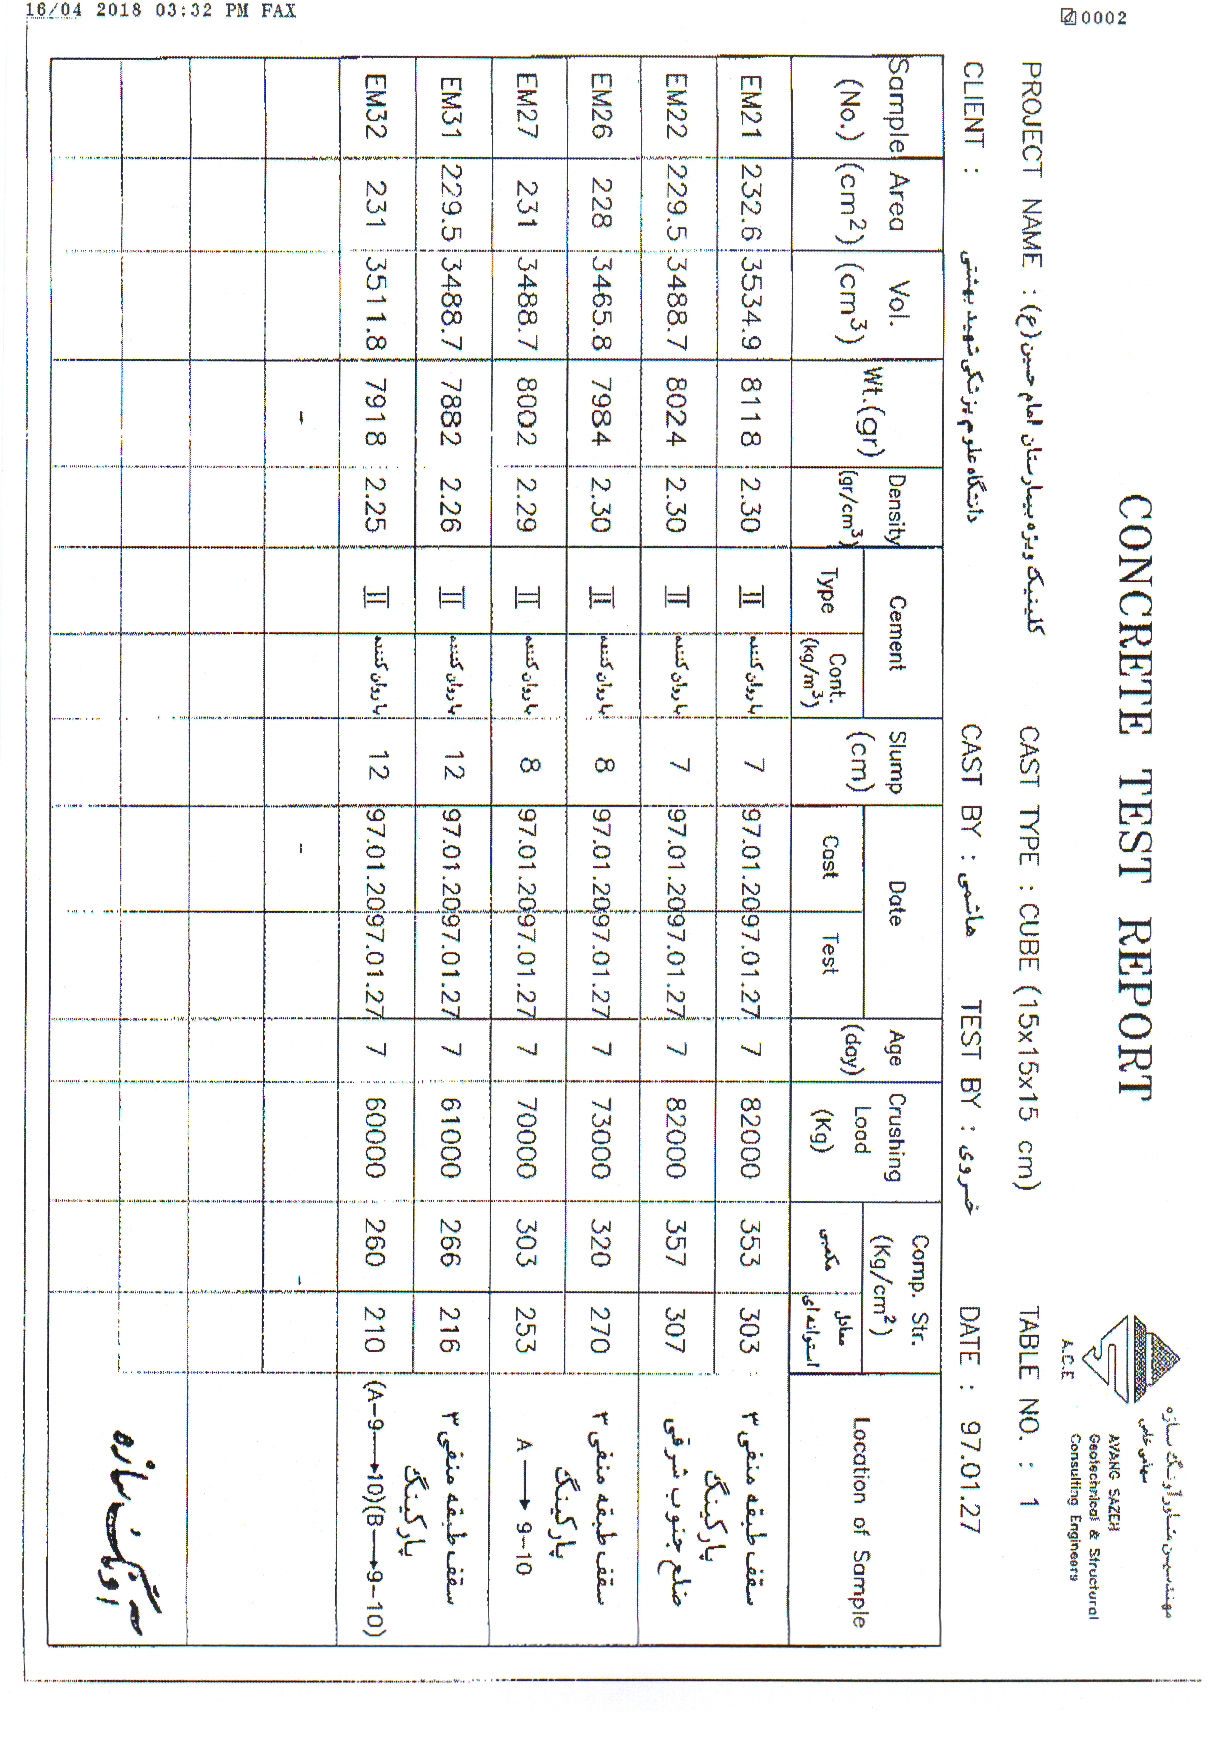 16/04 2018 03:32 PM FAX
0002
CONCRETE TEST REPORT
مهندسین مشاور آونگ سازه
سهامی خاص
AVANG SAZEH
Geotechnical & Structural
Consulting Engineers
A.C.E
PROJECT NAME : کلینیک ویژه بیمارستان امام حسین (ع) CAST TYPE : CUBE (15x15x15 cm) TABLE NO. : 1
CLIENT : دانشگاه علوم پزشکی شهید بهشتی CAST BY : هاشمی TEST BY : خسروی DATE : 97.01.27
Sample (No.) Area (cm²) Vol. (cm³) Wt.(gr) Density (gr/cm³) Cement Type Cont. (kg/m³) Slump (cm) Date Cast Test Age (day) Crushing Load (Kg) Comp. Str. (Kg/cm²) مکعبی معادل استوانه ای Location of Sample
EM21 232.6 3534.9 8118 2.30 II با روان کننده 7 97.01.20 97.01.27 7 82000 353 303 سقف طبقه منفی ۳
پارکینگ
EM22 229.5 3488.7 8024 2.30 II با روان کننده 7 97.01.20 97.01.27 7 82000 357 307 ضلع جنوب شرقی
EM26 228 3465.8 7984 2.30 II با روان کننده 8 97.01.20 97.01.27 7 73000 320 270 سقف طبقه منفی ۳
پارکینگ
EM27 231 3488.7 8002 2.29 II با روان کننده 8 97.01.20 97.01.27 7 70000 303 253 A → 9-10
EM31 229.5 3488.7 7882 2.26 II با روان کننده 12 97.01.20 97.01.27 7 61000 266 216 سقف طبقه منفی ۳
پارکینگ
EM32 231 3511.8 7918 2.25 II با روان کننده 12 97.01.20 97.01.27 7 60000 260 210 (A-9→10)(B→9-10)
- - -
آونگ سازه